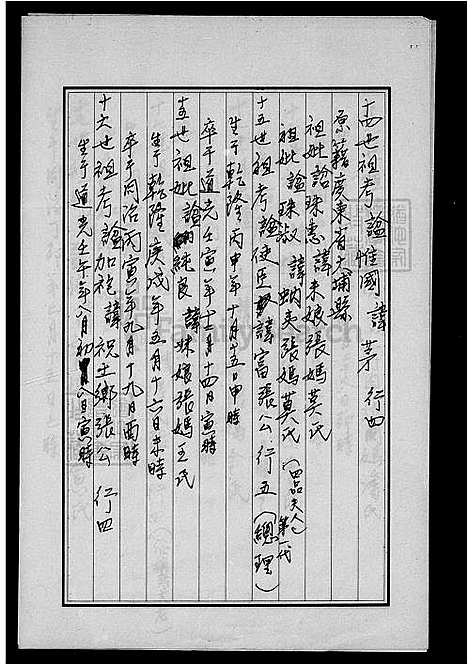 十四世祖考諡惟國諱茅行四
原籍廣東省大埔縣
祖妣諡昧惠諱未娘張媽莫氏
祖妣諡珠淑諱蚋夫張媽莫氏（四品夫人）第一代
十五世祖考諡使臣諱富張公行五（總理）
生于乾隆丙申年十月十五日申時
卒于道光壬寅年十二月十四日寅時
十五世祖妣諡純良諱妹娘張媽王氏
生于乾隆庚戌年五月十六日未時
卒于同治丙寅年九月十九日酉時
十六世祖考諡加袍諱祝土鄉張公行四
生于道光壬午年八月初八日寅時